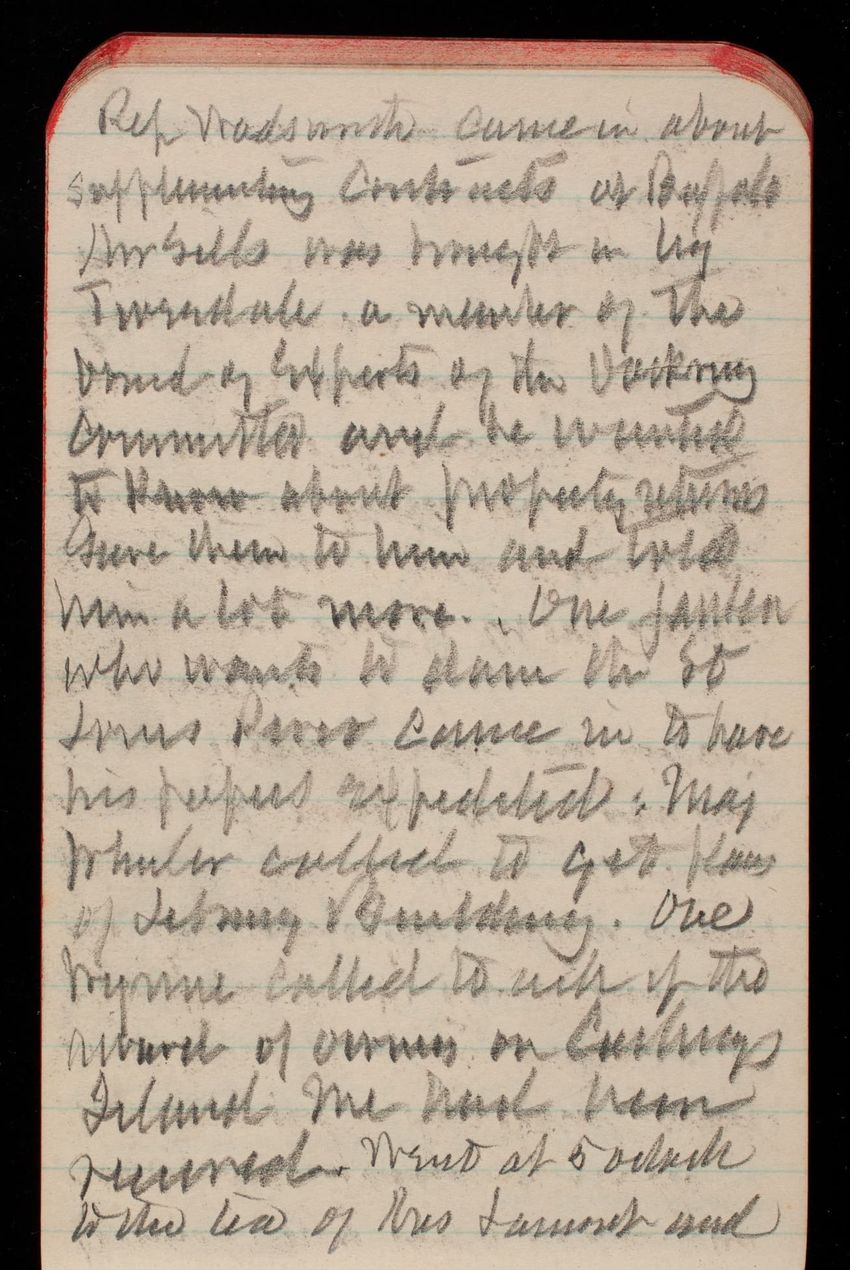 Rep Wadsworth came in about
supplementing Contracts at Buffalo
Mr Sells was brought in by
Tweedale. a member of the
board of Experts of the Dockery
Committee and he wanted
to know about property returns
Gave them to him and told
him a lot more. One
who wants to dam the St
Louis River came in to have
his papers expedited. Maj
called to get plans
of Library Building. One
Wynne called to ask if the
award of owners on Cushings
Island Me had been
received. Went at 5 oclock
to the tea of Mrs Lamont and